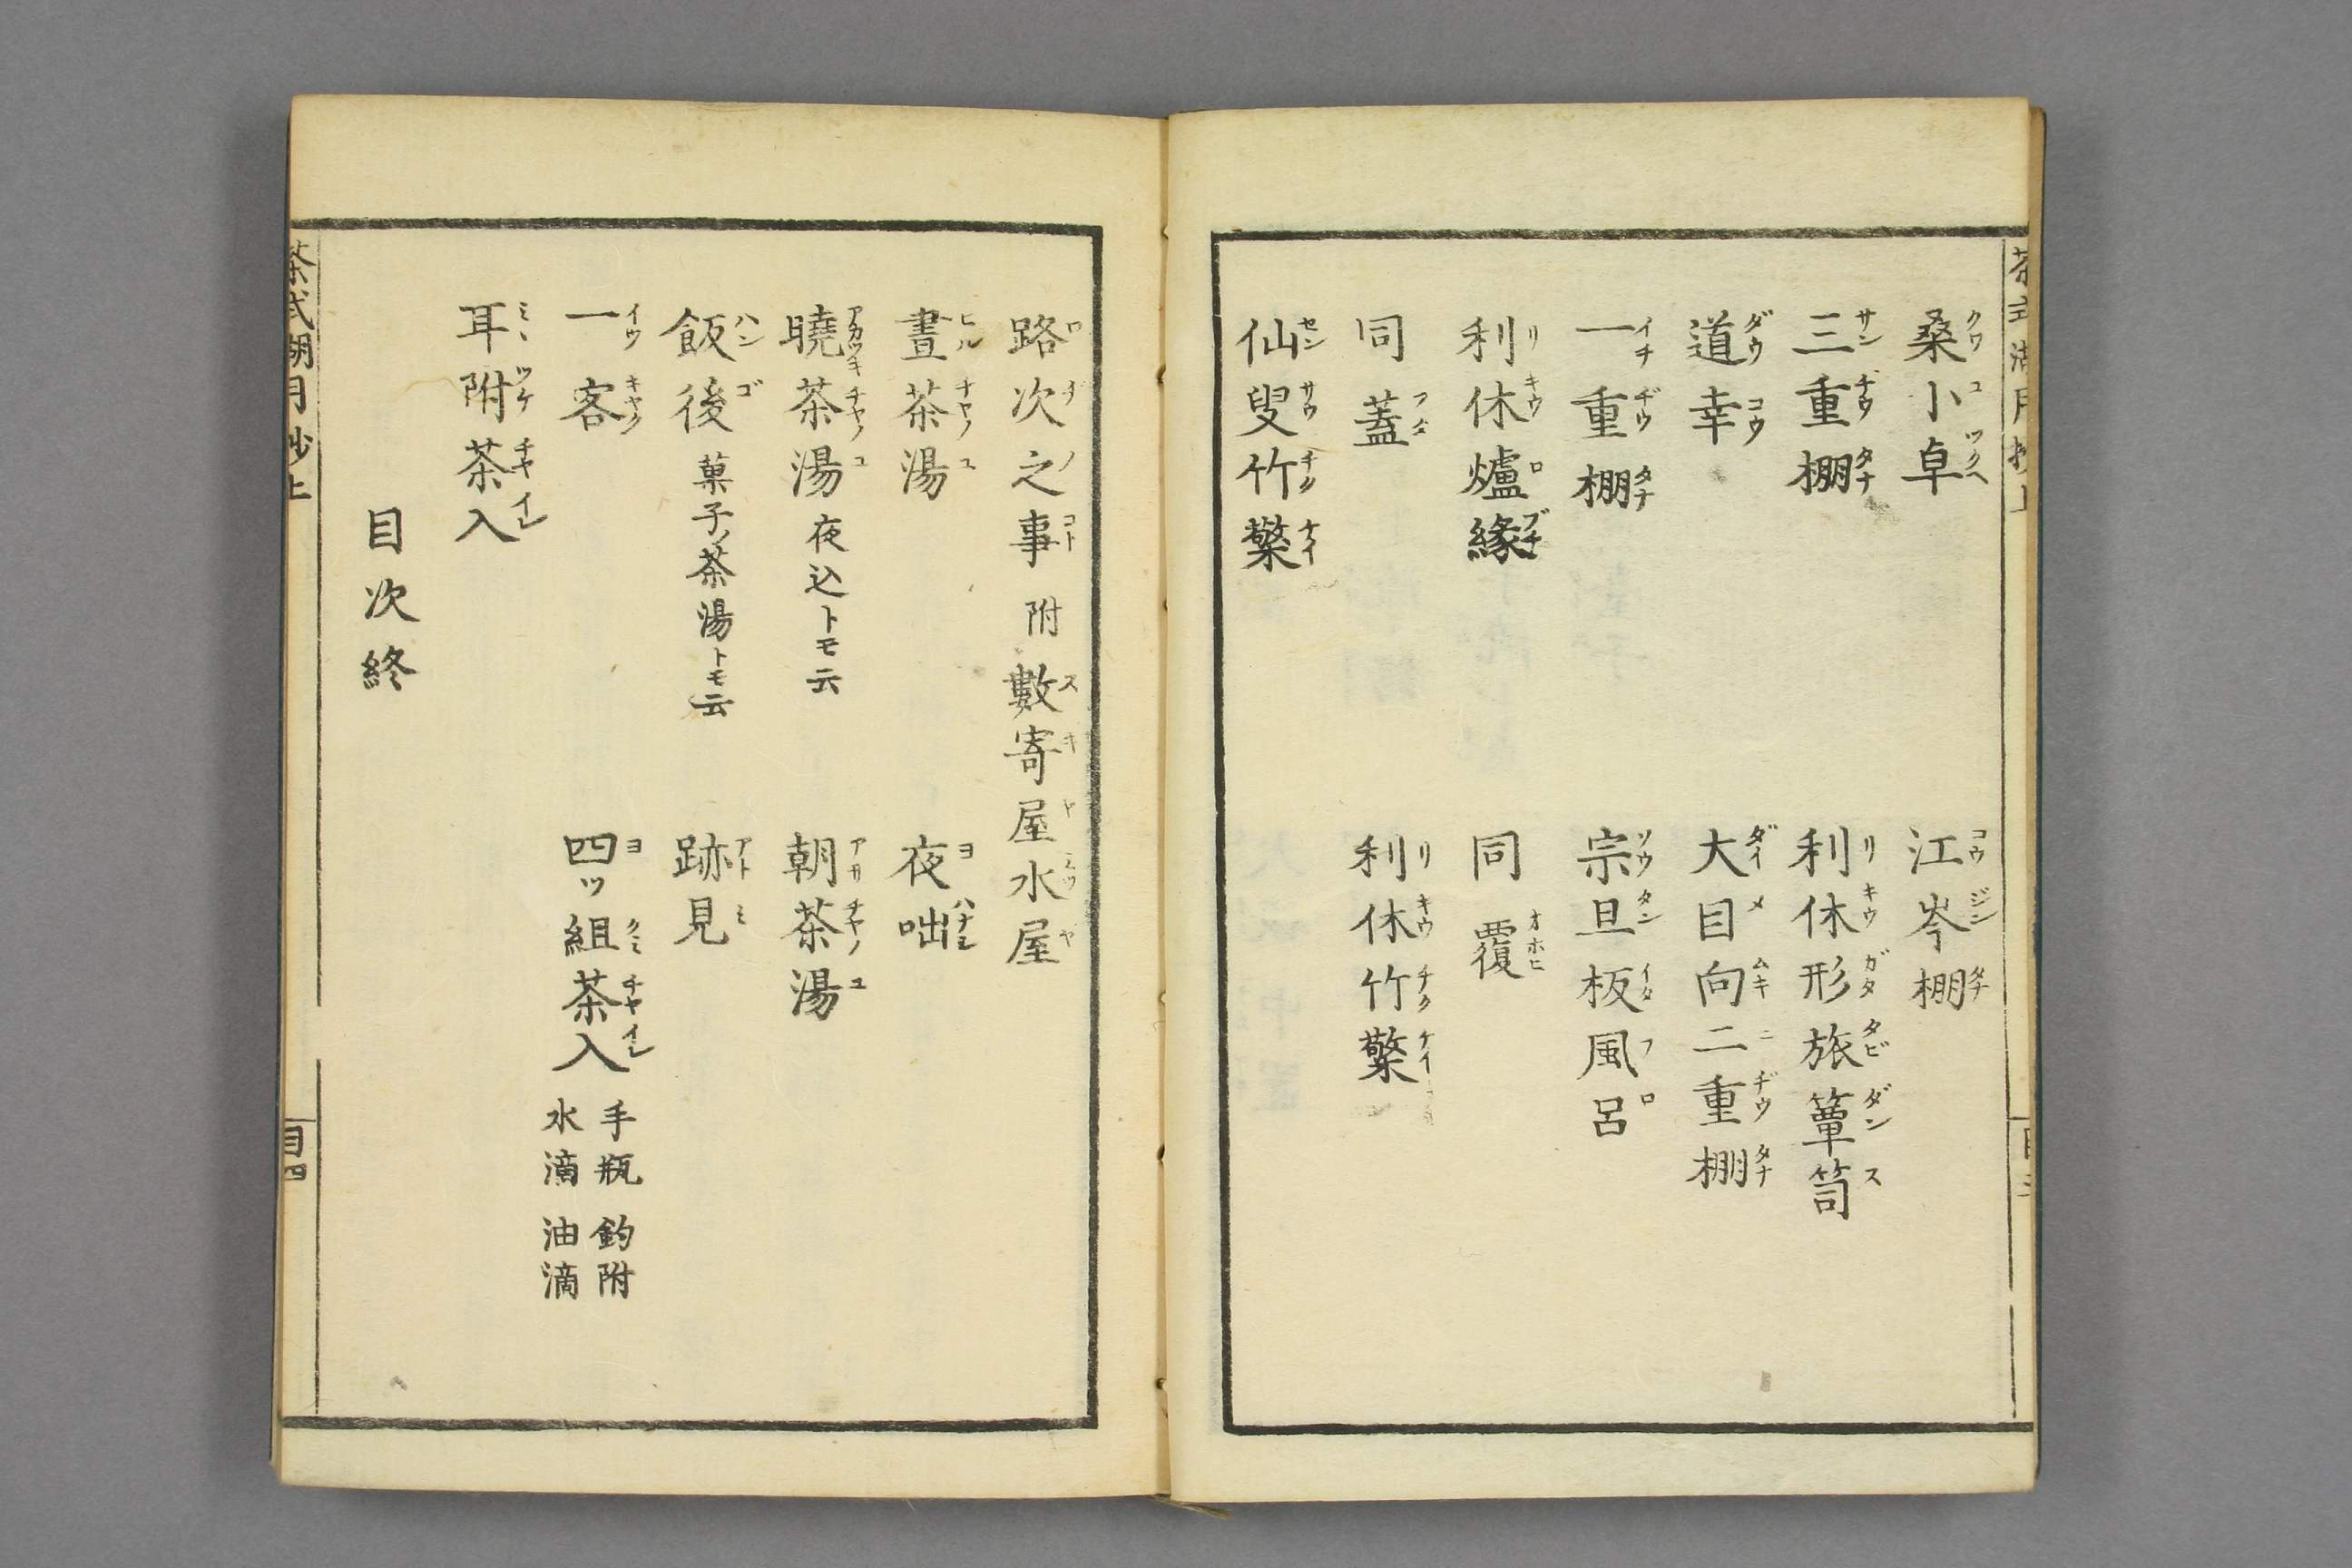 茶式湖月抄上
桑小卓 江岑棚
三重棚 利休形旅簞笥
道幸 大目向二重棚
一重棚 宗旦板風呂
利休爐緣 同覆
同蓋 利休竹檠
仙叟竹檠
路次之事 附 數寄屋水屋
晝茶湯 夜咄
曉茶湯 夜込トモ云 朝茶湯
飯後 菓子ノ茶湯トモ云 跡見
一客 四ツ組茶入 手瓶 釣附 水滴 油滴
耳附茶入
目次終
茶式湖月抄上 目四